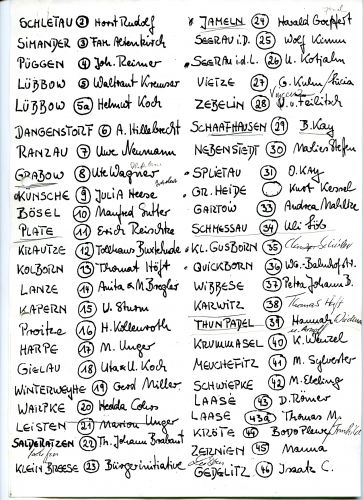 SCHLETAU ② Horst Rudolf
SIMANDER ③ Fam. Altenkirch
PÜGGEN ④ Joh. Reimer
LÜBBOW ⑤ Waltraut Kreuser
LÜBBOW 5a Helmut Koch
DANGENSTORF ⑥ A. Hillebrecht
RANZAU ⑦ Uwe Naumann
GRABOW ⑧ Ute Wagner
KUNSCHE ⑨ JULIA Heese
BÖSEL ⑩ Manfred Sutter
PLATE ⑪ Erich Reischke
KRAUTZE ⑫ Tollhaus Buxtehude
KOLBORN ⑬ Thomas Höft
LANZE ⑭ Anita & M. Bregler
KAPERN ⑮ U. Sturm
Proitze ⑯ H. Kollenroth
HARPE ⑰ M. Unger
GIELAU ⑱ Uta & U. Koch
WINTERWEYHE ⑲ Gerd Miller
WAILPKE ⑳ Hedda
LEISTEN 21 Marion Unger
SALDERATZEN 22 Th. Johann Brabant
KLEIN BREESE 23 Bürgerinitiative
JAMELN 24 Harald Goepfert
SEERAU i.D. 25 Wolf Kimm
SEERAU i.d.L. 26 U. Kotjahn
VIETZE 27 G. Kuhn /
ZEBELIN 28 V. v. Feilitsch
SCHAAFHAUSEN 29 B. Kay
NEBENSTEDT 30 Marlies Stefen
SPLIETAU 31 O. Kay
GR. HEIDE Kurt Kessel
GARTOW 33 Andrea Mahlke
SCHMESSAU 34 Uli
KL. GUSBORN 35
QUICKBORN 36 WG.-Bahnhofstr.
WIBBESE 37 Petra Johann B.
KARWITZ 38 Thomas Höft
THUNPADEL 39 Hannah
KRUMMASEL 40 K. Wenzel
MEUCHEFITZ 41 M. Sylvester
SCHWIEPKE 42 M. Ebeling
LAASE 43 D. Römer
LAASE 43a Thomas M.
KRÖTE 44 BODO Plewe
ZERNIEN 45 Manna
GEDELITZ 46 Isaak C.